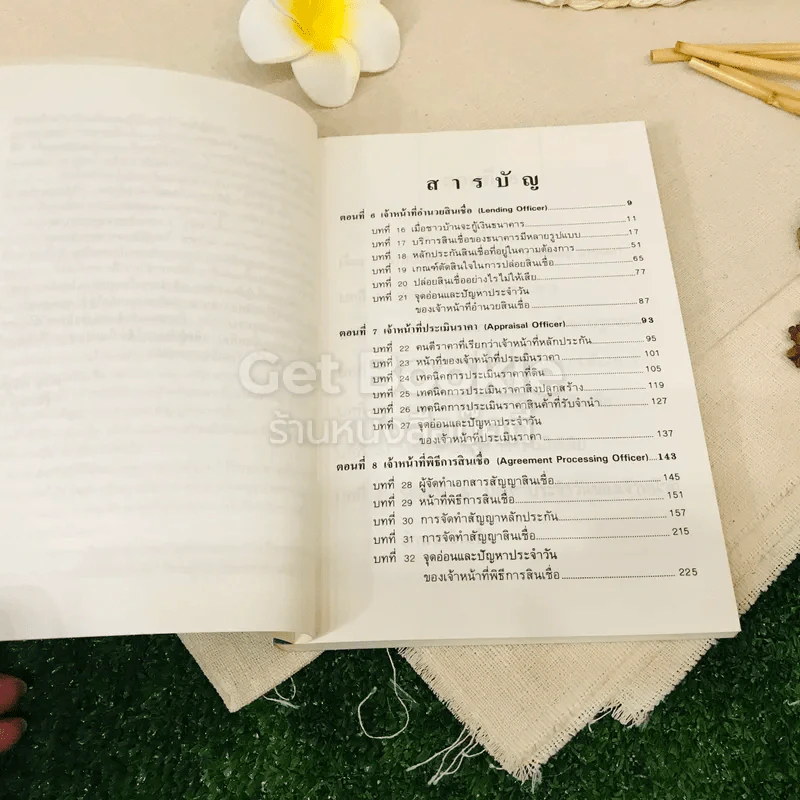 สารบัญ
ตอนที่ 6 เจ้าหน้าที่อำนวยสินเชื่อ (Lending Officer) 9
บทที่ 16 เมื่อชาวบ้านจะกู้เงินธนาคาร 11
บทที่ 17 บริการสินเชื่อของธนาคารมีหลายรูปแบบ 17
บทที่ 18 หลักประกันสินเชื่อที่อยู่ในความต้องการ 51
บทที่ 19 เกณฑ์ตัดสินใจในการปล่อยสินเชื่อ 65
บทที่ 20 ปล่อยสินเชื่ออย่างไรไม่ให้เสีย 77
บทที่ 21 จุดอ่อนและปัญหาประจำวัน
ของเจ้าหน้าที่อำนวยสินเชื่อ 87
ตอนที่ 7 เจ้าหน้าที่ประเมินราคา (Appraisal Officer) 93
บทที่ 22 คนตีราคาที่เรียกว่าเจ้าหน้าที่หลักประกัน 95
บทที่ 23 หน้าที่ของเจ้าหน้าที่ประเมินราคา 101
บทที่ 24 เทคนิคการประเมินราคาที่ดิน 105
บทที่ 25 เทคนิคการประเมินราคาสิ่งปลูกสร้าง 119
บทที่ 26 เทคนิคการประเมินราคาสินค้าที่รับจำนำ 127
บทที่ 27 จุดอ่อนและปัญหาประจำวัน
ของเจ้าหน้าที่ประเมินราคา 137
ตอนที่ 8 เจ้าหน้าที่พิธีการสินเชื่อ (Agreement Processing Officer) 143
บทที่ 28 ผู้จัดทำเอกสารสัญญาสินเชื่อ 145
บทที่ 29 หน้าที่พิธีการสินเชื่อ 151
บทที่ 30 การจัดทำสัญญาหลักประกัน 157
บทที่ 31 การจัดทำสัญญาสินเชื่อ 215
บทที่ 32 จุดอ่อนและปัญหาประจำวัน
ของเจ้าหน้าที่พิธีการสินเชื่อ 225
Get